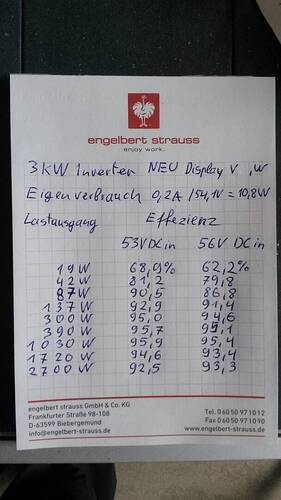 engelbert strauss
enjoy work.
3kW Inverter NEU Display V ,W
Eigenverbrauch 0,2A /54,1V = 10,8W
Lastausgang Effezienz
53VDCin 56V DCin
19W 68,9% 62,2%
42W 81,2 79,8
87W 90,5 86,8
137W 92,9 91,4
300W 95,0 94,6
390W 95,7 95,1
1030W 95,9 95,4
1720W 94,6 93,4
2700W 92,5 93,3
engelbert strauss GmbH & Co. KG
Frankfurter Straße 98-108 Tel. 06050 971012
D-63599 Biebergemünd Fax 06050 971090
info@engelbert-strauss.de www.engelbert-strauss.de